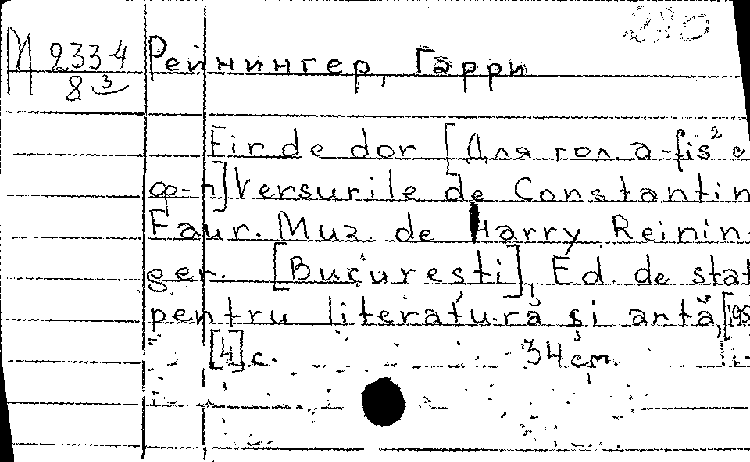 280
М 2334 Рейнингер, Гарри
8 3
Fir de dor [Для гол. a-fis² с
ф-п] Versurile de Constantin
Faur. Muz. de Harry Reinin-
ger. [București], Ed. de stat
pentru literatură și artă, [195
[4] с. 34 cm.